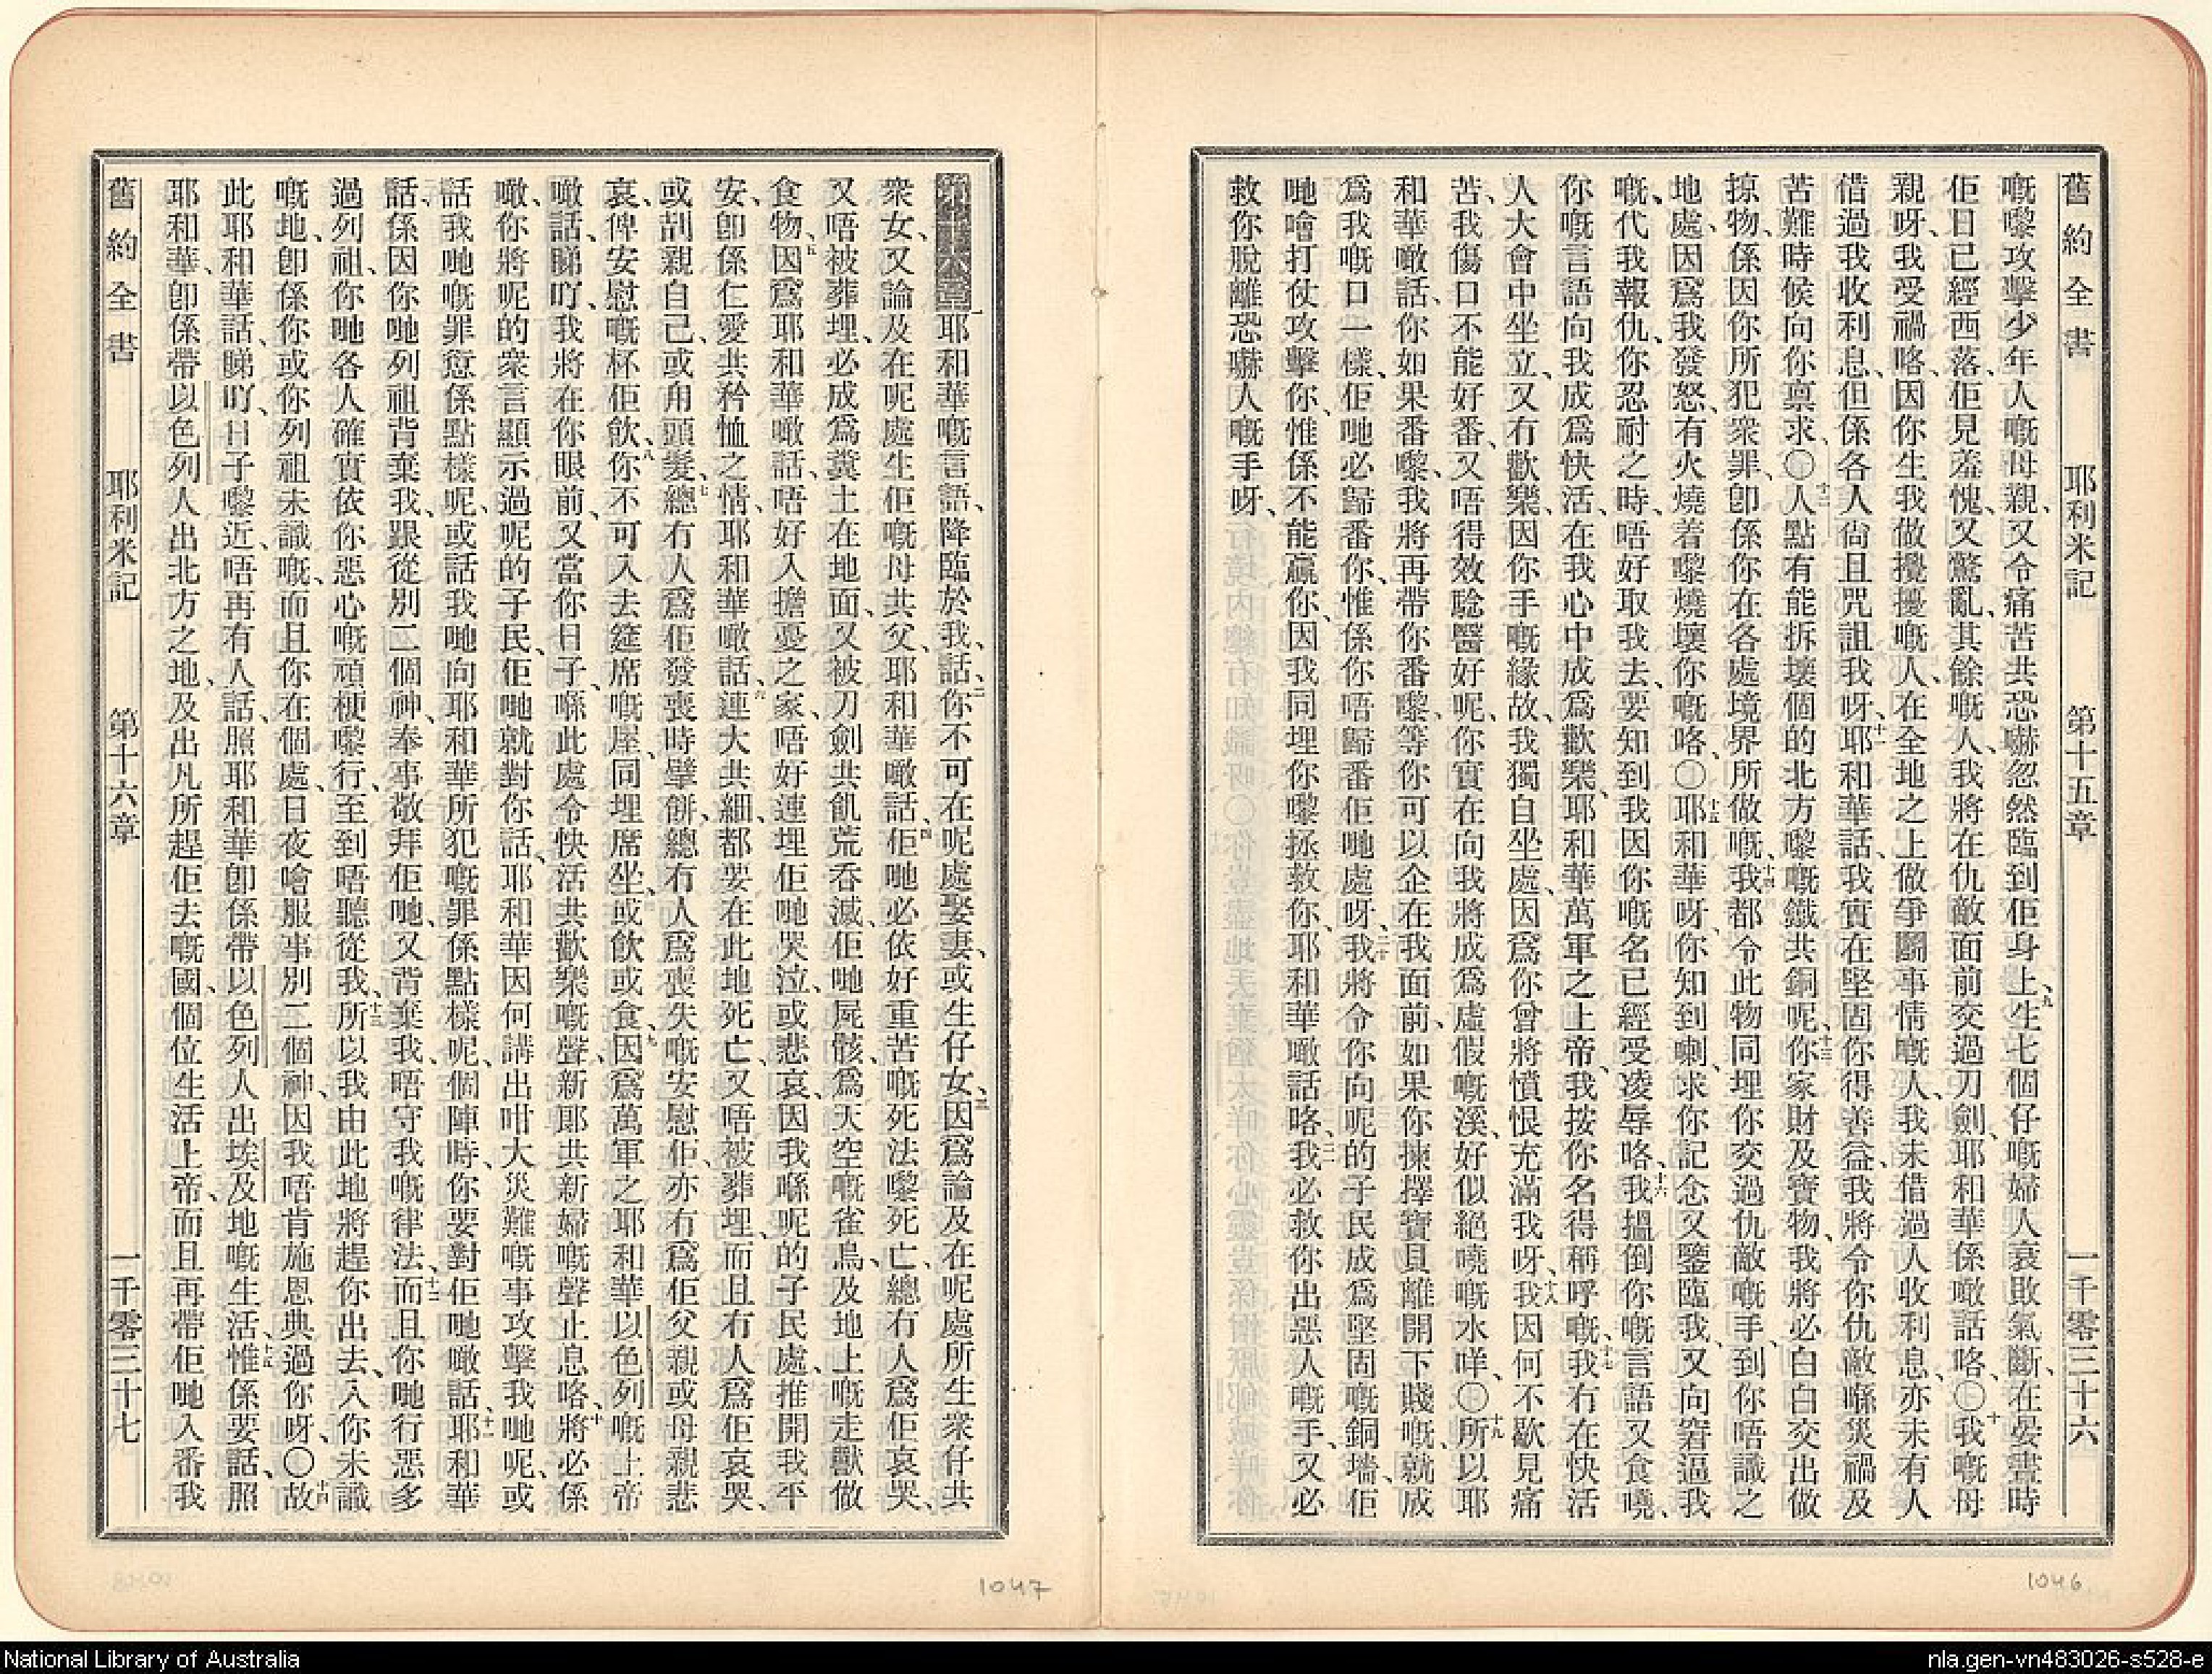 舊約全書 耶利米記 第十五章 一千零三十六
嘅嚟攻擊少年人嘅母親、又令痛苦共恐嚇忽然臨到佢身上、九生七個仔嘅婦人衰敗氣斷、在晏晝時
佢日已經西落、佢見羞愧、又驚亂、其餘嘅人、我將在仇敵面前交過刀劍、耶和華係噉話咯、〇十我嘅母
親呀、我受禍咯、因你生我做攪擾嘅人、在全地之上做爭鬭事情嘅人、我未借過人收利息、亦未有人
借過我收利息、但係各人尙且咒詛我呀、十一耶和華話、我實在堅固你得善益、我將令你仇敵喺災禍及
苦難時候向你禀求、〇十二人點有能拆壞個的北方嚟嘅鐵共銅呢、十三你家財及寶物、我將必白白交出做
掠物、係因你所犯衆罪、卽係你在各處境界所做嘅、十四我都令此物同埋你交過仇敵嘅手、到你唔識之
地處、因爲我發怒、有火燒着嚟燒壞你嘅咯、〇十五耶和華呀、你知到喇、求你記念又鑒臨我、又向窘逼我
嘅、代我報仇、你忍耐之時、唔好取我去、要知到我因你嘅名已經受凌辱咯、十六我搵倒你嘅言語又食曉、
你嘅言語向我成爲快活、在我心中成爲歡樂、耶和華萬軍之上帝、我按你名得稱呼嘅、十七我冇在快活
人大會中坐立、又冇歡樂、因你手嘅緣故、我獨自坐處、因爲你曾將憤恨充滿我呀、十八我因何不歇見痛
苦、我傷口不能好番、又唔得效騐醫好呢、你實在向我將成爲虛假嘅溪、好似絕曉嘅水咩、〇十九所以耶
和華噉話、你如果番嚟、我將再帶你番嚟、等你可以企在我面前、如果你揀擇寶貝離開下賤嘅、就成
爲我嘅口一樣、佢哋必歸番你、惟係你唔歸番佢哋處呀、二十我將令你向呢的子民成爲堅固嘅銅墻、佢
哋噲打仗攻擊你、惟係不能贏你、因我同埋你嚟拯救你、耶和華噉話咯、二一我必救你出惡人嘅手、又必
救你脫離恐嚇人嘅手呀、
第十六章一耶和華嘅言語、降臨於我、話、二你不可在呢處娶妻、或生仔女、三因爲論及在呢處所生衆仔共
衆女、又論及在呢處生佢嘅母共父、耶和華噉話、四佢哋必依好重苦嘅死法嚟死亡、總冇人爲佢哀哭、
又唔被葬埋、必成爲糞土在地面、又被刀劍共飢荒呑滅、佢哋屍骸、爲天空嘅雀鳥、及地上嘅走獸做
食物、五因爲耶和華噉話、唔好入擔憂之家、唔好連埋佢哋哭泣、或悲哀、因我喺呢的子民處、推開我平
安、卽係仁愛共矜恤之情、耶和華噉話、六連大共細、都要在此地死亡、又唔被葬埋、而且冇人爲佢哀哭、
或剖親自己、或甪頭髮、七總冇人爲佢發喪時擘餅、總冇人爲喪失嘅安慰佢、亦冇爲佢父親或母親悲
哀、俾安慰嘅杯佢飮、八你不可入去筵席嘅屋、同埋席坐、或飮或食、九因爲萬軍之耶和華以色列嘅上帝
噉話、睇吖、我將在你眼前、又當你日子、喺此處令快活共歡樂嘅聲、新郎共新婦嘅聲止息咯、十將必係
噉、你將呢的衆言顯示過呢的子民、佢哋就對你話、耶和華因何講出咁大災難嘅事攻擊我哋呢、或
話我哋嘅罪愆係點樣呢、或話我哋向耶和華所犯嘅罪係點樣呢、個陣時、你要對佢哋噉話、十一耶和華
話、係因你哋列祖背棄我、跟從別二個神、奉事敬拜佢哋、又背棄我、唔守我嘅律法、十二而且你哋行惡多
過列祖、你哋各人確實依你惡心嘅頑梗嚟行、至到唔聽從我、十三所以我由此地將趕你出去、入你未識
嘅地、卽係你或你列祖未識嘅、而且你在個處、日夜噲服事別二個神、因我唔肯施恩典過你呀、〇十四故
此耶和華話、睇吖、日子嚟近、唔再有人話、照耶和華卽係帶以色列人出埃及地嘅生活、十五惟係要話、照
耶和華、卽係帶以色列人出北方之地、及出凡所趕佢去嘅國、個位生活上帝、而且再帶佢哋入番我
舊約全書 耶利米記 第十六章 一千零三十七
1046
1047
National Library of Australia
nla.gen-vn483026-s528-e